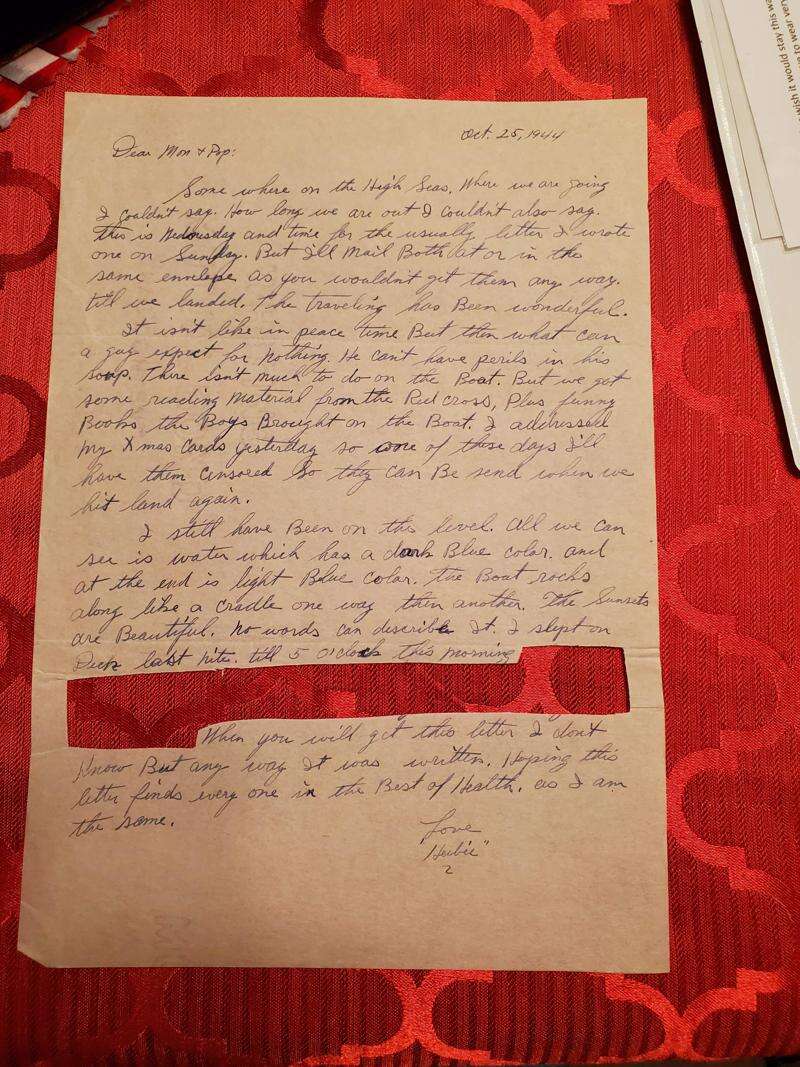 Oct. 25, 1944
Dear Mon & Pop:
Some where on the High Seas, Where we are going
I couldn't say. How long we are out I couldn't also say.
this is Wednesday and time for the usually letter I wrote
one on Sunday. But I'll Mail Both at or in the
same envelope as you wouldn't get them any way.
till we landed. The traveling has Been wonderful.
It isn't like in peace time But then what can
a guy expect for nothing. He can't have perils in his
soup. There isn't much to do on the Boat. But we got
some reading Material from the Red cross, Plus funny
Books the Boys Brought on the Boat. I addressed
my Xmas Cards yesterday so one of these days I'll
have them censored so they can Be send when we
hit land again.
I still have Been on the level. All we can
see is water which has a dark Blue color. and
at the end is light Blue color. the Boat rocks
along like a cradle one way then another. The Sunsets
are Beautiful. No words can describe It. I slept on
Deck last nite. till 5 o'clock this morning
When you will get this letter I don't
Know But any way It was written. Hoping this
letter finds every one in the Best of Health. as I am
the same.
Love
"Herbie"
2
wish it would stay this wa
to wear ver